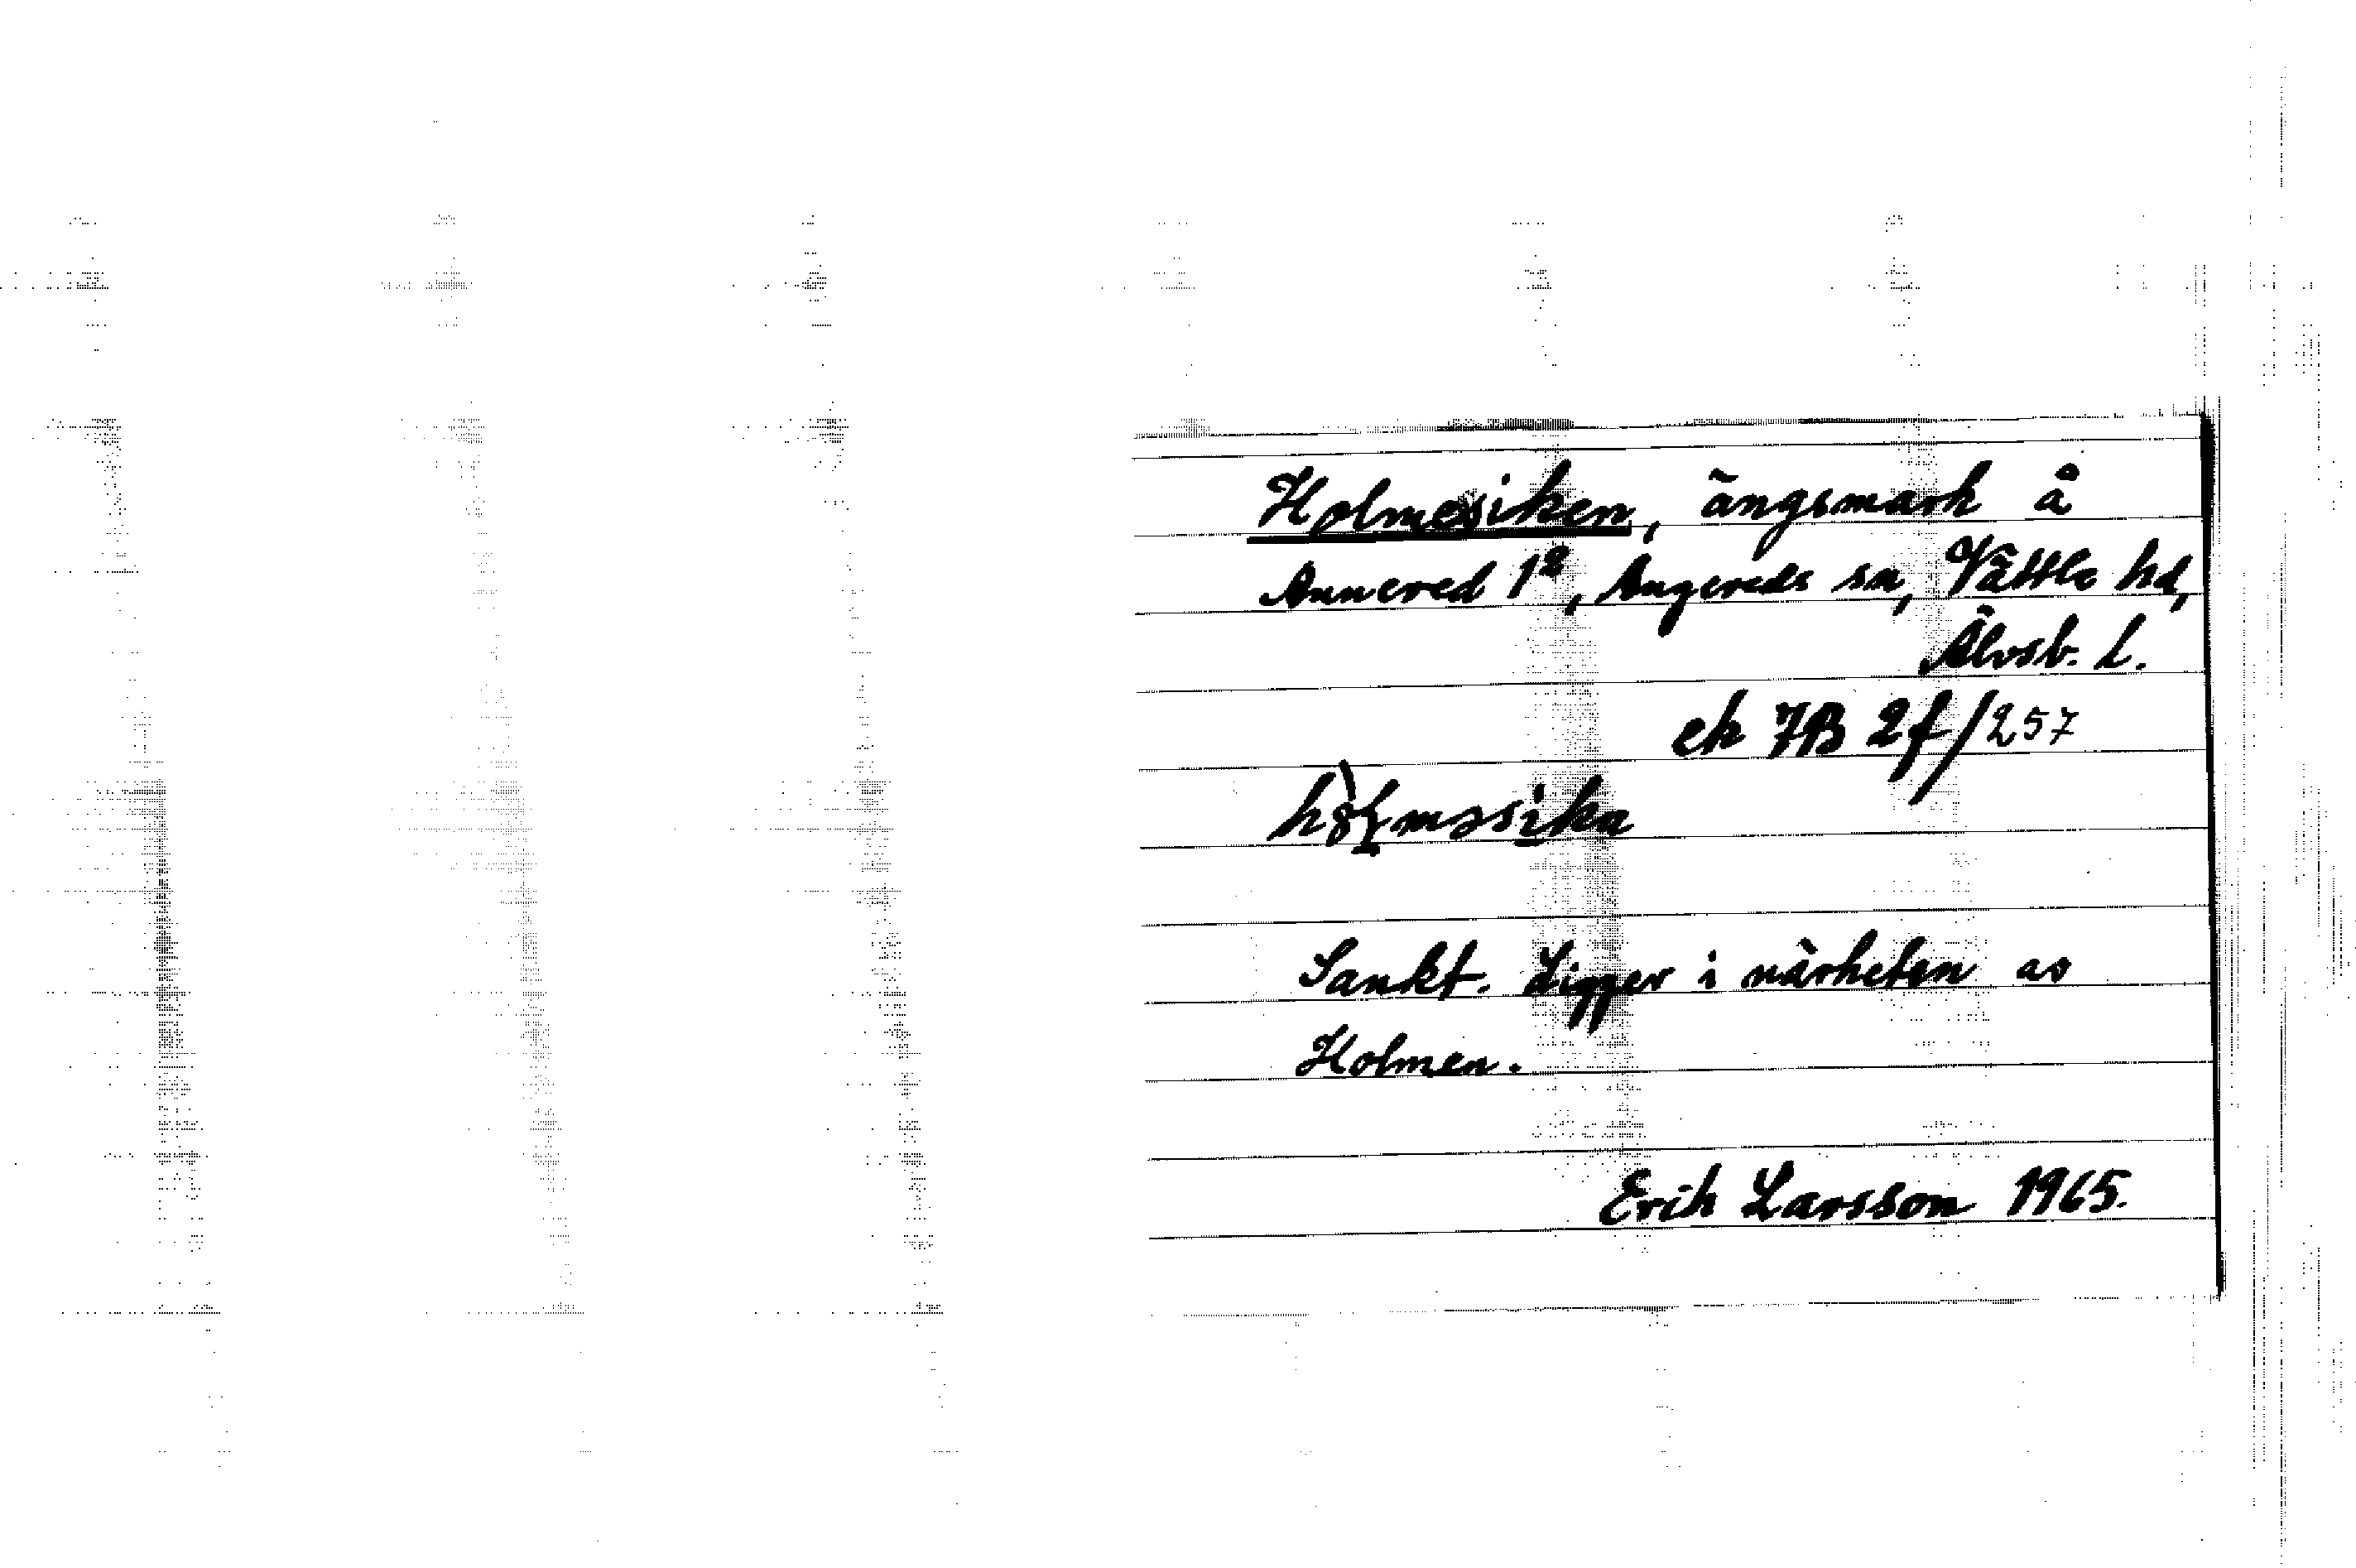 Holmesiken, ängsmark å
Annered 1², Angereds sn, Vättle hd,
Älvsb. L.
ek 7B 2f/257
Sankt. Ligger i närheten av
Holmen.
Erik Larsson 1965.